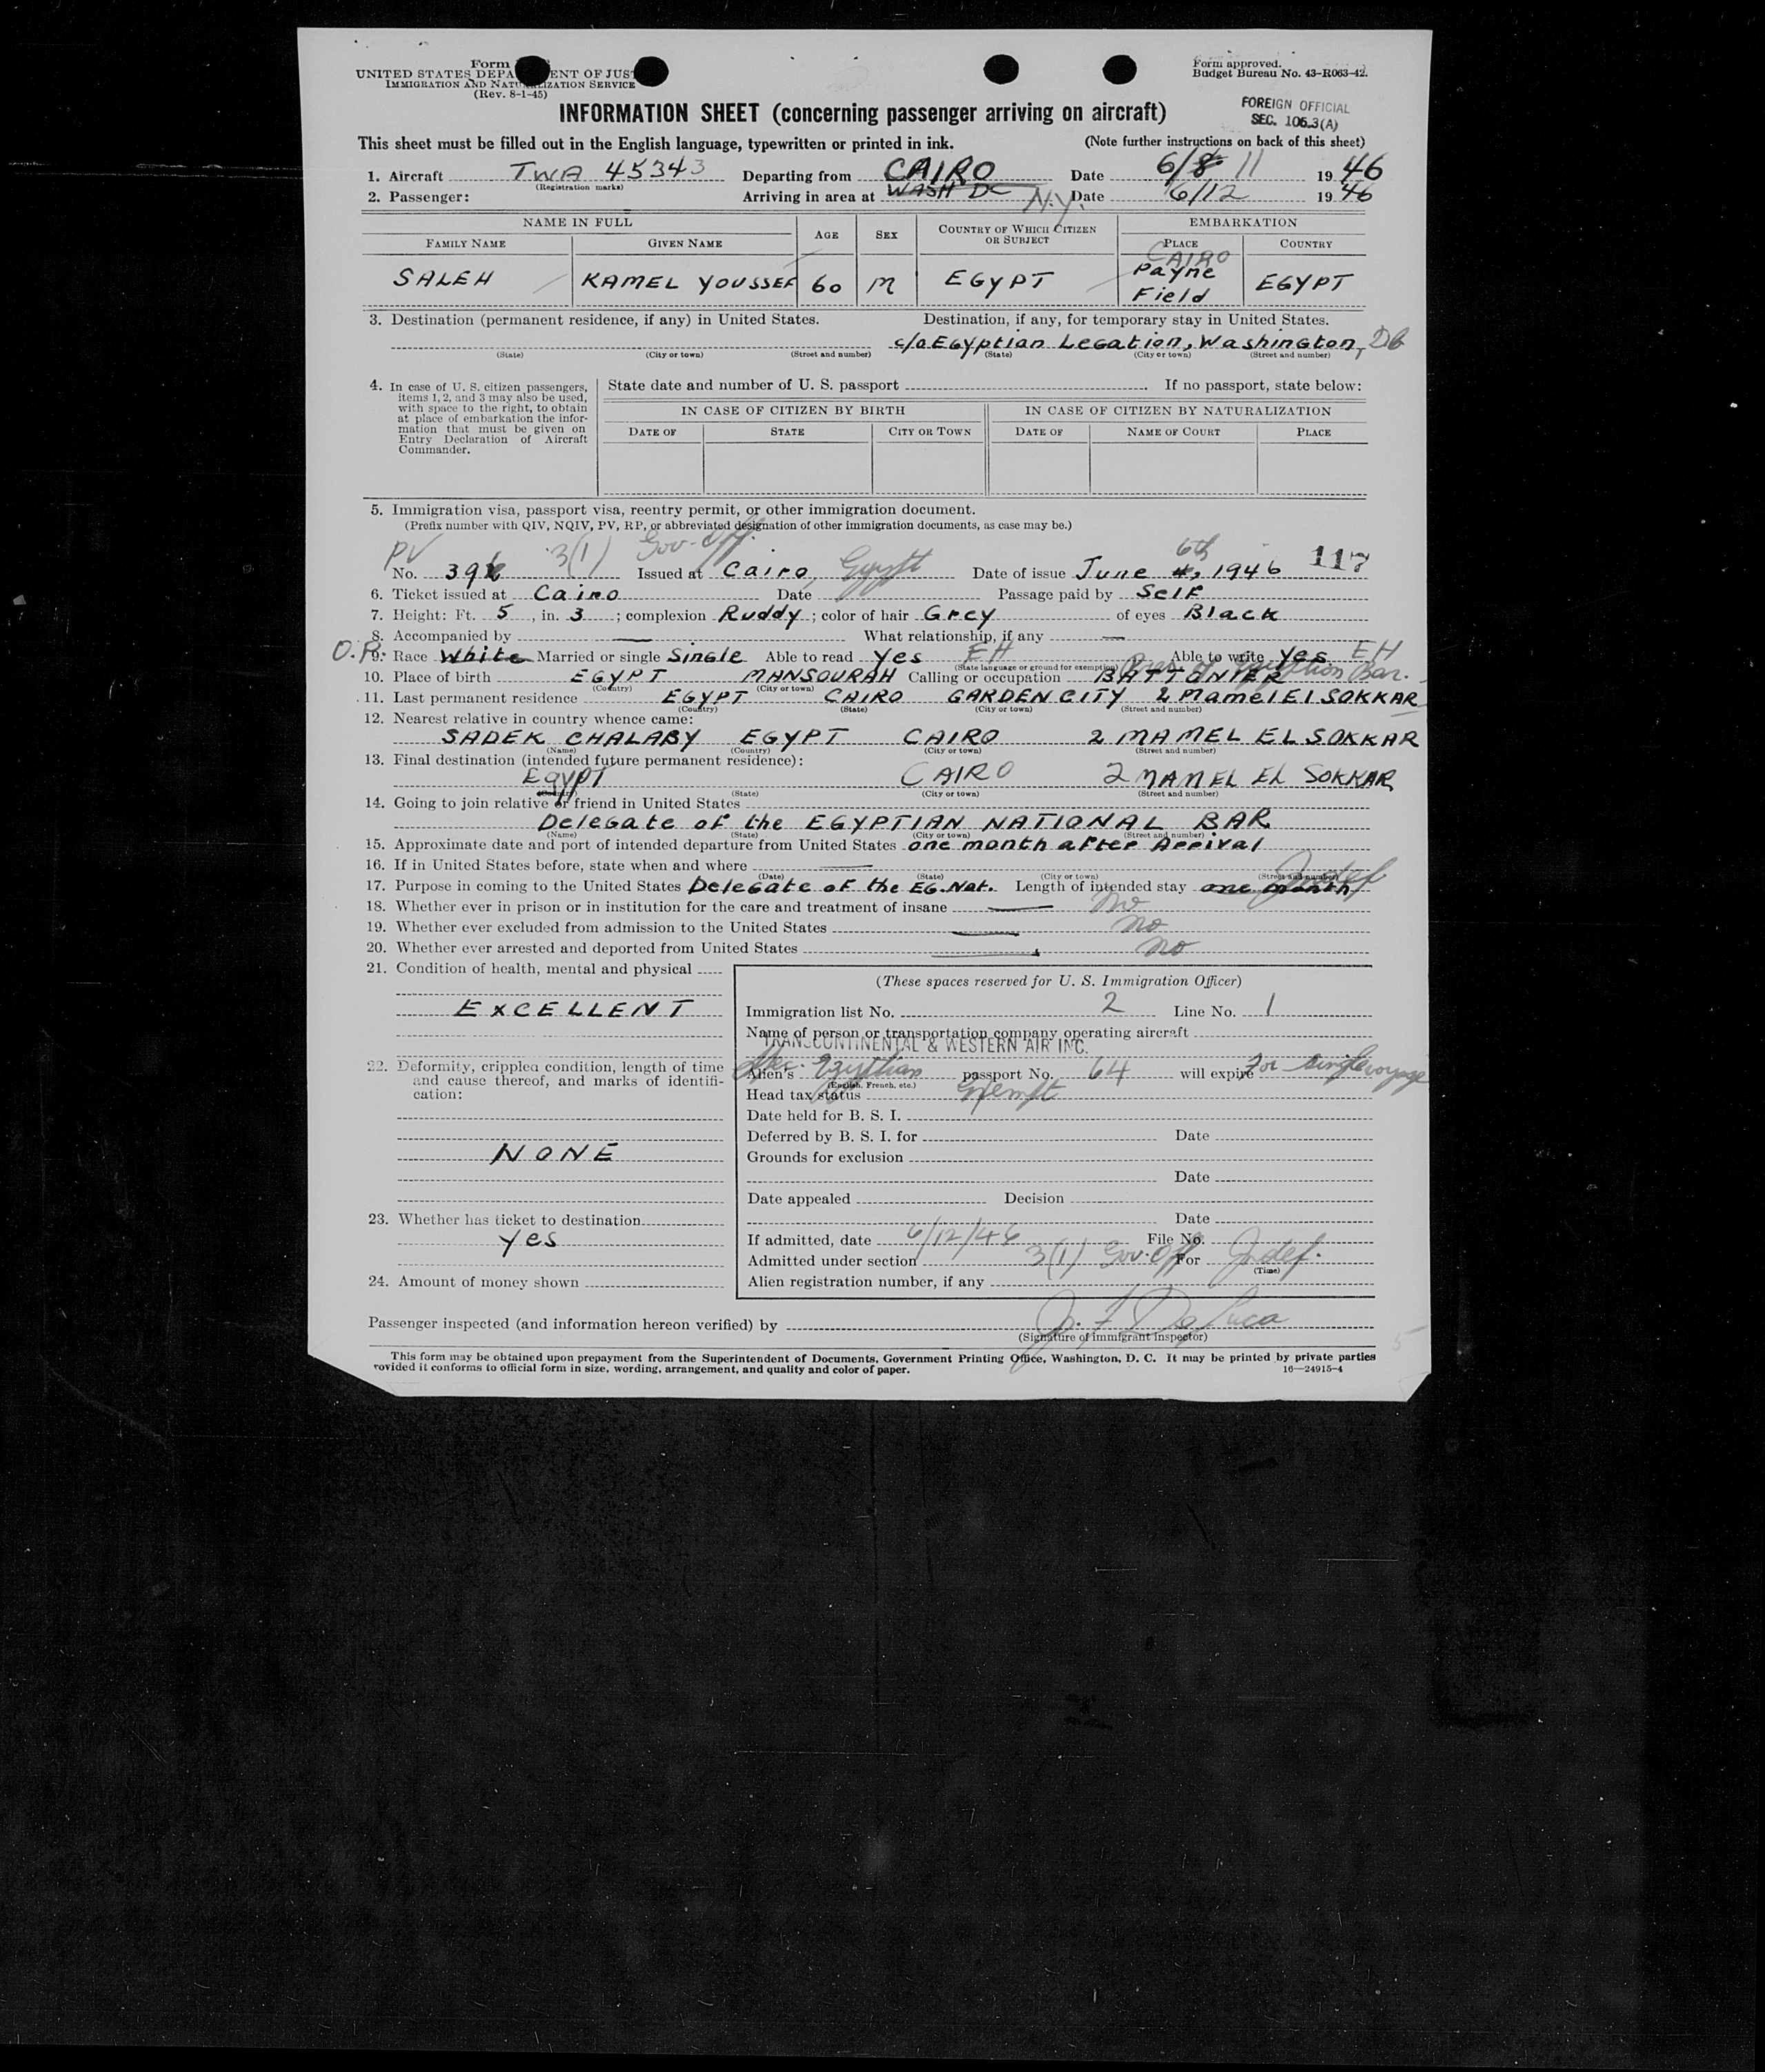 Form
UNITED STATES DEPA ENT OF JUS
IMMIGRATION AND NATURALIZATION SERVICE
(Rev. 8-1-45)
Form approved.
Budget Bureau No. 43-R063-42.
INFORMATION SHEET (concerning passenger arriving on aircraft)
FOREIGN OFFICIAL
SEC. 105.3(A)
This sheet must be filled out in the English language, typewritten or printed in ink. (Note further instructions on back of this sheet)
1. Aircraft TWA 45343 Departing from CAIRO Date 6/8 11 1946
(Registration marks)
2. Passenger: Arriving in area at WASH DC N.Y. Date 6/12 1946
NAME IN FULL AGE SEX COUNTRY OF WHICH CITIZEN OR SUBJECT EMBARKATION
FAMILY NAME GIVEN NAME PLACE COUNTRY
CAIRO
SALEH KAMEL YOUSSEF 60 M EGYPT Payne Field EGYPT
3. Destination (permanent residence, if any) in United States. Destination, if any, for temporary stay in United States.
c/o Egyptian Legation, Washington, DC
(State) (City or town) (Street and number) (State) (City or town) (Street and number)
4. In case of U. S. citizen passengers, items 1, 2, and 3 may also be used, with space to the right, to obtain at place of embarkation the information that must be given on Entry Declaration of Aircraft Commander.
State date and number of U. S. passport If no passport, state below:
IN CASE OF CITIZEN BY BIRTH IN CASE OF CITIZEN BY NATURALIZATION
DATE OF STATE CITY OR TOWN DATE OF NAME OF COURT PLACE
5. Immigration visa, passport visa, reentry permit, or other immigration document.
(Prefix number with QIV, NQIV, PV, RP, or abbreviated designation of other immigration documents, as case may be.)
PV 3(1) Gov. Off. 6th
No. 39 Issued at Cairo, Egypt Date of issue June 4, 1946 117
6. Ticket issued at Cairo Date Passage paid by Self
7. Height: Ft. 5, in. 3; complexion Ruddy; color of hair Grey of eyes Black
8. Accompanied by — What relationship, if any —
O.P. 9. Race White Married or single Single Able to read Yes EH Able to write Yes EH
(State language or ground for exemption) Pres. of Egyptian Bar.
10. Place of birth EGYPT MANSOURAH Calling or occupation BATTONIER
(Country) (City or town)
11. Last permanent residence EGYPT CAIRO GARDEN CITY 2 Mamel El SOKKAR
(Country) (State) (City or town) (Street and number)
12. Nearest relative in country whence came:
SADEK CHALABY EGYPT CAIRO 2 MAMEL EL SOKKAR
(Name) (Country) (City or town) (Street and number)
13. Final destination (intended future permanent residence):
Egypt CAIRO 2 MAMEL EL SOKKAR
(Country) (State) (City or town) (Street and number)
14. Going to join relative or friend in United States
Delegate of the EGYPTIAN NATIONAL BAR
(Name) (State) (City or town) (Street and number)
15. Approximate date and port of intended departure from United States one month after Arrival
16. If in United States before, state when and where —
(Date) (State) (City or town) (Street and number)
17. Purpose in coming to the United States Delegate of the EG. Nat. Length of intended stay one month Indef
18. Whether ever in prison or in institution for the care and treatment of insane — no
19. Whether ever excluded from admission to the United States — no
20. Whether ever arrested and deported from United States — no
21. Condition of health, mental and physical
EXCELLENT
22. Deformity, crippled condition, length of time and cause thereof, and marks of identification:
NONE
23. Whether has ticket to destination
Yes
24. Amount of money shown
(These spaces reserved for U. S. Immigration Officer)
Immigration list No. 2 Line No. 1
Name of person or transportation company operating aircraft
TRANSCONTINENTAL & WESTERN AIR INC.
Alien's Egyptian passport No. 64 will expire For single voyage
(English, French, etc.)
Head tax status Exempt
Date held for B. S. I.
Deferred by B. S. I. for Date
Grounds for exclusion
Date
Date appealed Decision
Date
If admitted, date 6/12/46 File No.
Admitted under section 3(1) Gov. Off For Indef.
(Time)
Alien registration number, if any
Passenger inspected (and information hereon verified) by J. F. De Luca
(Signature of immigrant inspector)
5
This form may be obtained upon prepayment from the Superintendent of Documents, Government Printing Office, Washington, D. C. It may be printed by private parties
rovided it conforms to official form in size, wording, arrangement, and quality and color of paper. 16—24915-4